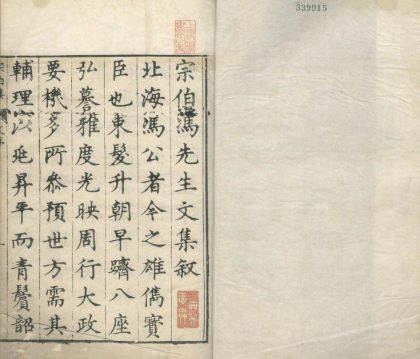 宗伯馮先生文集叙
北海馮公者今之雄儁寳
臣也束髮升朝早躋八座
弘謩雅度光映周行大政
要機多所叅預世方需其
輔理以延昇平而青鬢韶
339915